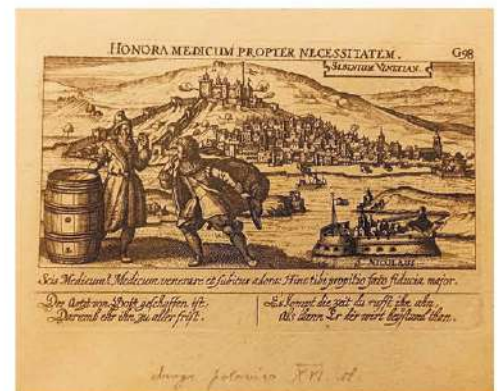 HONORA MEDICUM PROPTER NECESSITATEM.
G98
SEBENIUM VENETIAN.
S. NICOLAUS
Scis Medicum? Medicum venerare et subitus adora: Hinc tibi propitio fœto fiducia major.
Der Artzt von Gott geschaffen ist,
Darumb ehr ihn zu aller frist.
Es kompt die zeit du ruffst ihn ahn,
Als dann Er dir wirt beystand than.
XVI. st.